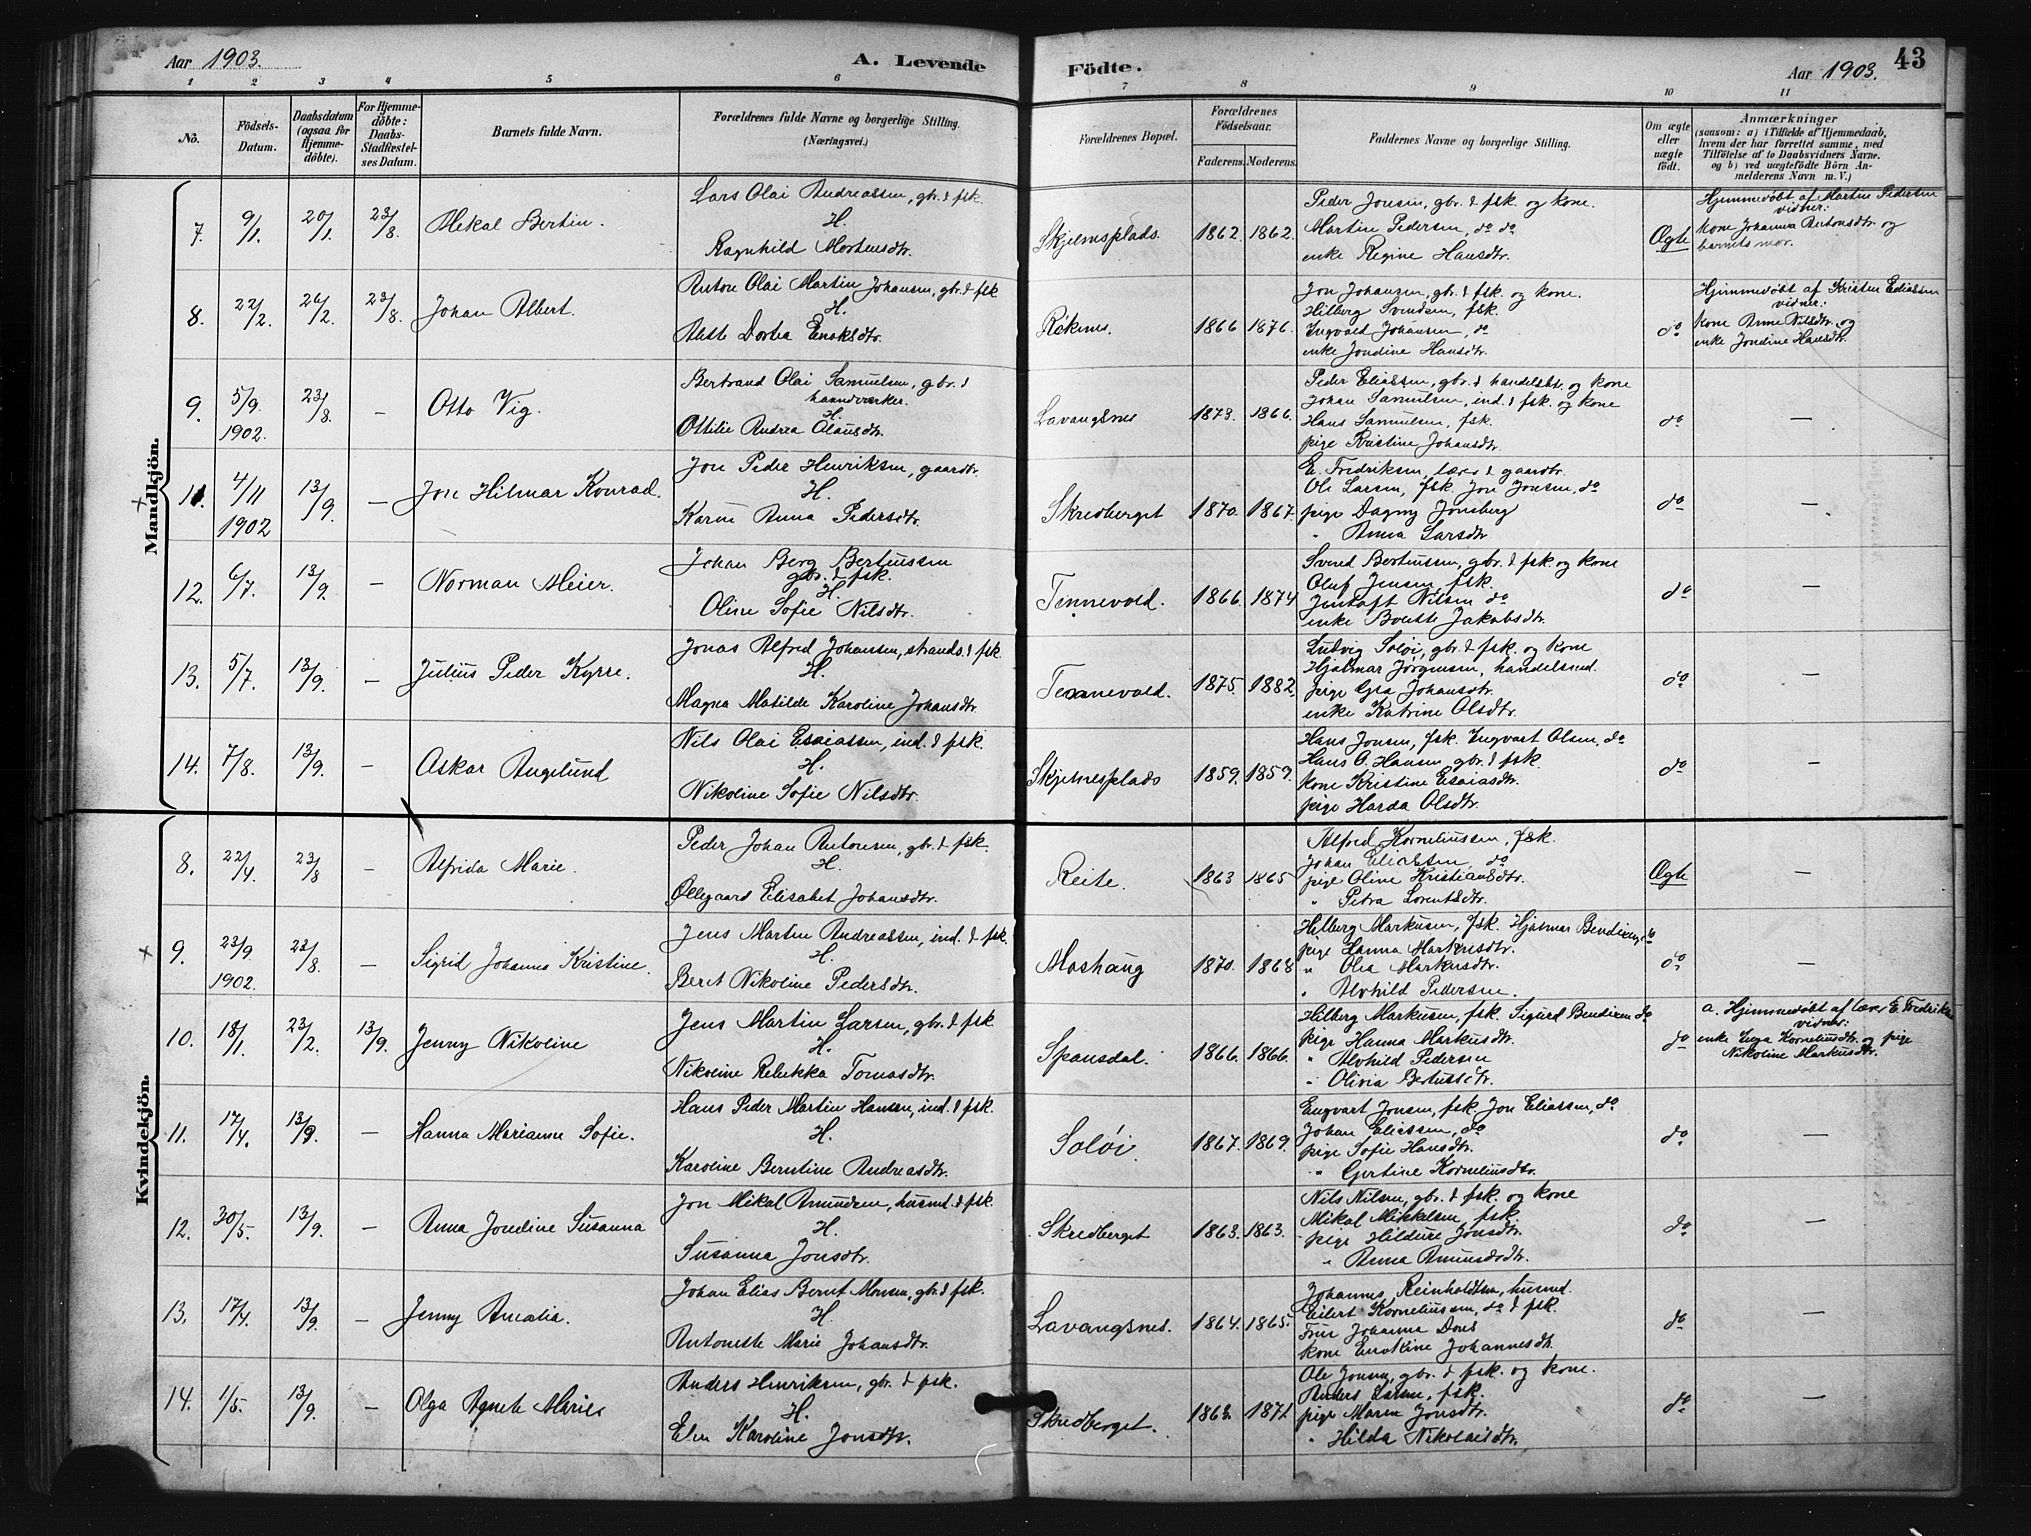 Aar 1903.
A. Levende Födte.
Aar 1903.
43
1 2 3 4 5 6 7 8 9 10 11
No.
Födsels-
Datum.
Daabsdatum
(ogsaa for
Hjemme-
döbte).
For Hjemme-
döbte:
Daabs-
Stadfæstel-
ses Datum.
Barnets fulde Navn.
Forældrenes fulde Navne og borgerlige Stilling.
(Næringsvei.)
Forældrenes Bopæl.
Forældrenes
Födselsaar.
Faderens. Moderens.
Faddernes Navne og borgerlige Stilling.
Om ægte
eller
uægte
födt.
Anmærkninger
(saasom: a) i Tilfælde af Hjemmedaab,
hvem der har forrettet samme, med
Tilföielse af to Daabsvidners Navne.
og b) ved uægtefödte Börn An-
melderens Navn m. V.)
Mandkjön.
7. 9/1. 20/1. 23/8. Mekal Bertin.
Lars Olai Andreassen, gbr. & fsk.
H.
Ragnhild Mortensdtr.
Skjelnesplads. 1862. 1862.
Peder Jonsen, gbr. & fsk. og kone.
Martin Pedersen, do do
enke Regine Hansdtr.
Ægte
Hjemmedöbt af Martin Pedersen
vidner:
kone Johanna Antonsdtr og
barnets mor.
8. 22/2. 26/2. 23/8. Johan Albert.
Anton Olai Martin Johansen, gbr. & fsk
H.
Aleste Dortea Enoksdtr.
Röknes. 1866 1876.
Jon Johansen, gbr. & fsk. og kone.
Hilberg Svendsen, fsk.
Ingvald Johansen, do
enke Jondine Hansdtr.
do
Hjemmedöbt af Kristen Eliassen
vidner:
kone Anne Nilsdtr. og
enke Jondine Hansdtr.
9. 5/9. 1902. 23/8. — Otto Vig.
Bertrand Olai Samuelsen, gbr. &
haandværker.
H.
Ottilie Andrea Olausdtr.
Lavangsnes 1873. 1866.
Peder Eliassen, gbr. & handelsbt. og kone
Johan Samuelsen, ind. & fsk. og kone
Hans Samuelsen, fsk.
pige Kristine Johansdtr.
do —
11. 4/11 1902 13/9. — Jon Hilmar Konrad.
Jon Peder Henriksen, gaardbr.
H.
Karen Anna Pedersdtr.
Skredberget 1870. 1867.
E. Fredriksen, lærer & gaardbr.
Ole Larsen, fsk. Jon Jonsen, do
pige Dagny Jönsberg
" Anna Larsdtr
do —
12. 6/7. 13/9. — Norman Meier.
Johan Berg Berteussen
gbr. & fsk.
H.
Oline Sofie Nilsdtr.
Tennevold. 1866. 1874
Svend Berteussen, gbr. & fsk. og kone
Oluf Jensen, fsk.
Jentoft Nilsen do
enke Boleste Jakobsdtr.
do —
13. 5/7. 13/9. — Julius Peder Kyrre.
Jonas Alfred Johansen, strands. & fsk.
H.
Magna Matilde Karoline Johansdtr.
Tennevold. 1875. 1882.
Ludvig Solöi, gbr. & fsk. og kone
Hjalmar Jörgensen, handelsmd.
pige Gea Johansdtr.
enke Katrine Olsdtr.
do —
14. 7/8. 13/9. — Askar Angelund
Nils Olai Esaiassen, ind. & fsk.
H.
Nikoline Sofie Nilsdtr.
Skjelnesplads 1859. 1859.
Hans Jonsen, fsk. Engvart Olsen, do
Hans O. Hansen, gbr. & fsk.
kone Kristine Esaiasdtr.
pige Harda Olsdtr.
do —
Kvindekjön.
8. 22/4. 23/8 — Alfrida Marie.
Peder Johan Antonsen, gbr. & fsk.
H.
Öllegaard Elisabet Johansdtr.
Reite. 1863 1865
Alfred Korneliussen, fsk.
Johan Eliassen, do
pige Oline Kristiansdtr.
" Petra Lorentsdtr.
Ægte —
9. 23/9. 1902. 23/8. — Sigrid Johannes Kristine.
Jens Martin Andreassen, ind. & fsk.
H.
Beret Nikoline Pedersdtr.
Moshaug 1870. 1868
Hilberg Markusen, fsk. Hjalmar Bendixen, do
pige Hanna Markusdtr.
" Olea Markusdtr.
" Alvhild Pedersen.
do —
10. 18/1. 23/2. 13/9. Jenny Nikoline
Jens Martin Larsen, gbr. & fsk.
H.
Nikoline Rebekka Tomasdtr.
Spansdal. 1866. 1866.
Hilberg Markusen, fsk. Sigurd Bendixen do
pige Hanna Markusdtr.
" Alvhild Pedersen
" Olivia Berteusdtr.
do
a. Hjemmedöbt af lærer E. Fredriksen
vidner:
enke Inga Korneliusdtr. og pige
Nikoline Markusdtr.
11. 17/4. 13/9. — Hanna Marianne Sofie.
Hans Peder Martin Hansen, ind. & fsk.
H.
Karoline Berntine Andreasdtr.
Solöi. 1867. 1869.
Engvart Jonsen, fsk. Jon Eliassen, do
Johan Eliassen, do
pige Sofie Hansdtr.
" Gjertine Korneliusdtr.
do —
12. 30/5. 13/9. — Anna Jondine Susanna
Jon Mikal Amundsen, husmd. & fsk.
H.
Susanna Jonsdtr.
Skredberget 1863. 1863.
Nils Nilsen, gbr. & fsk. og kone
Mikal Mikkelsen, fsk.
pige Hildure Jonsdtr.
" Anna Amundsdtr.
do —
13. 17/4. 13/9. — Jenny Amalia.
Johan Elias Bernt Monsen, gbr. & fsk.
H.
Antonette Marie Johansdtr.
Lavangsnes. 1864. 1865.
Johannes Reinholdtsen, husmd.
Eilert Korneliussen, do & fsk.
Fru Johanna Dons
kone Enokine Johannesdtr.
do —
14. 1/5. 13/9. — Olga Agnete Marie
Anders Henriksen, gbr. & fsk.
H.
Elen Karoline Jonsdtr.
Skredberget. 1863. 1871.
Ole Jonsen, gbr. & fsk. og kone.
Anders Larsen, fsk.
pige Maren Jonsdtr.
" Hilda Nikolaisdtr.
do —